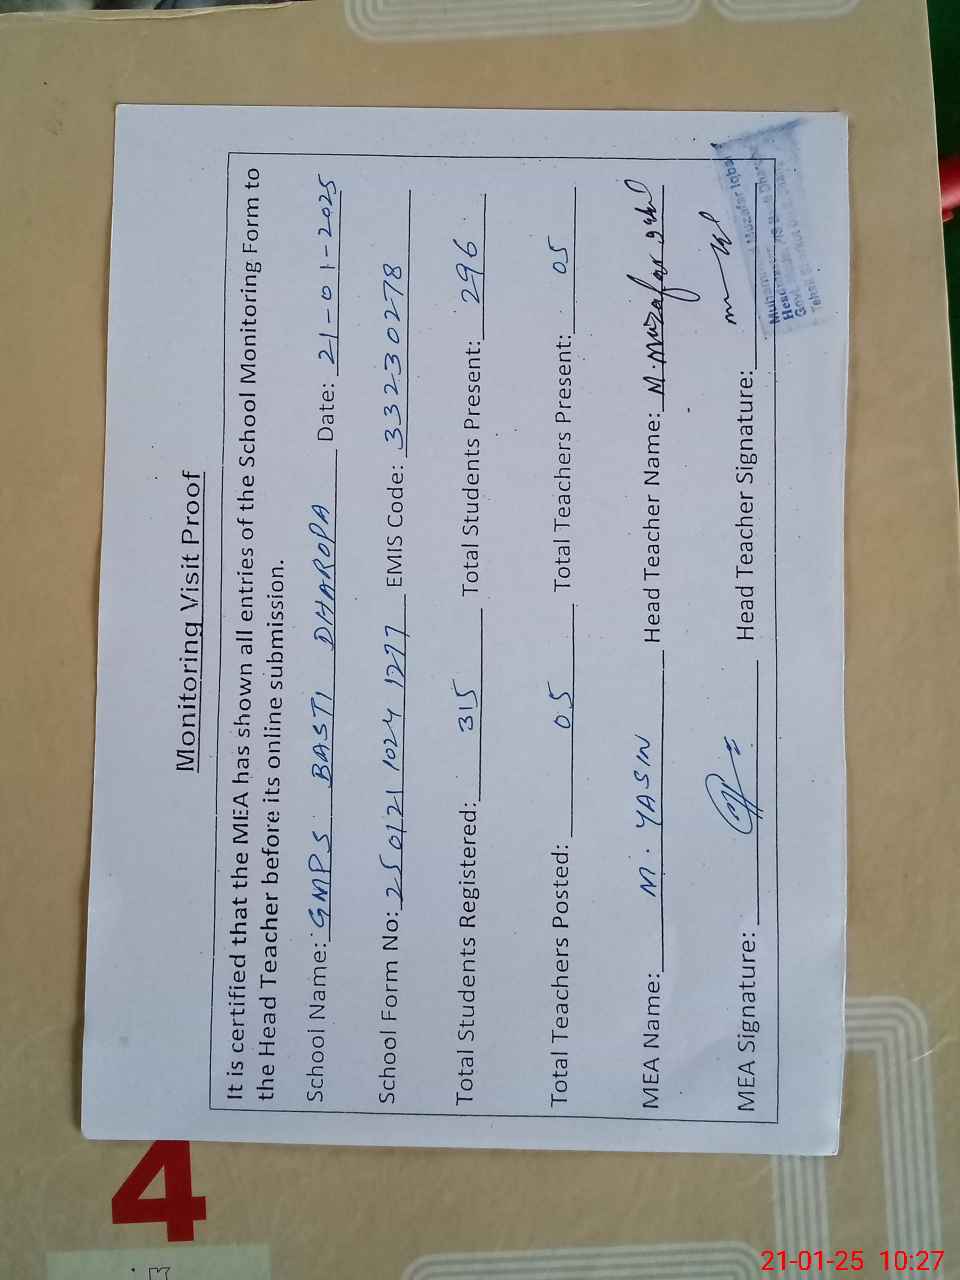 Monitoring Visit Proof
It is certified that the MEA has shown all entries of the School Monitoring Form to
the Head Teacher before its online submission.
School Name: GMPS BASTI DHAROPA Date: 21-01-2025
School Form No: 250121 1024 1277 EMIS Code: 33230278
Total Students Registered: 315 Total Students Present: 296
Total Teachers Posted: 05 Total Teachers Present: 05
MEA Name: M. YASIN Head Teacher Name: M. Muzafar
MEA Signature: Head Teacher Signature:
Muhammad Muzafar Iqbal
Head
Govt.
Tehsil
4
21-01-25 10:27